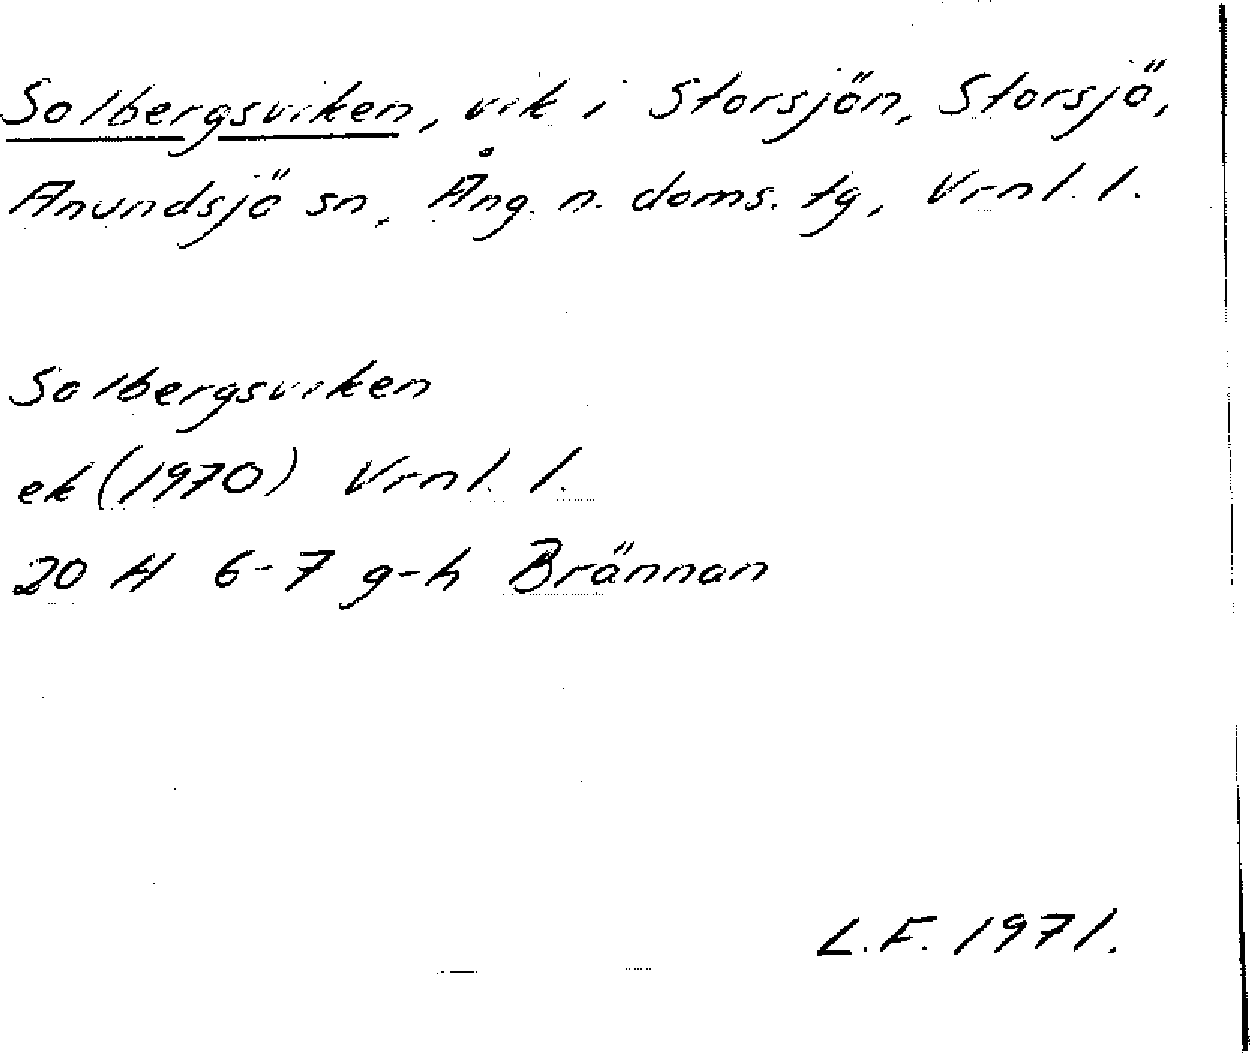 Solbergsviken, vik i Storsjön, Storsjö,
Anundsjö sn, Ång. n. doms. tg, Vrnl. l.
Solbergsviken
ek (1970) Vrnl. l.
20 H 6-7 g-h Brännan
L.F. 1971.